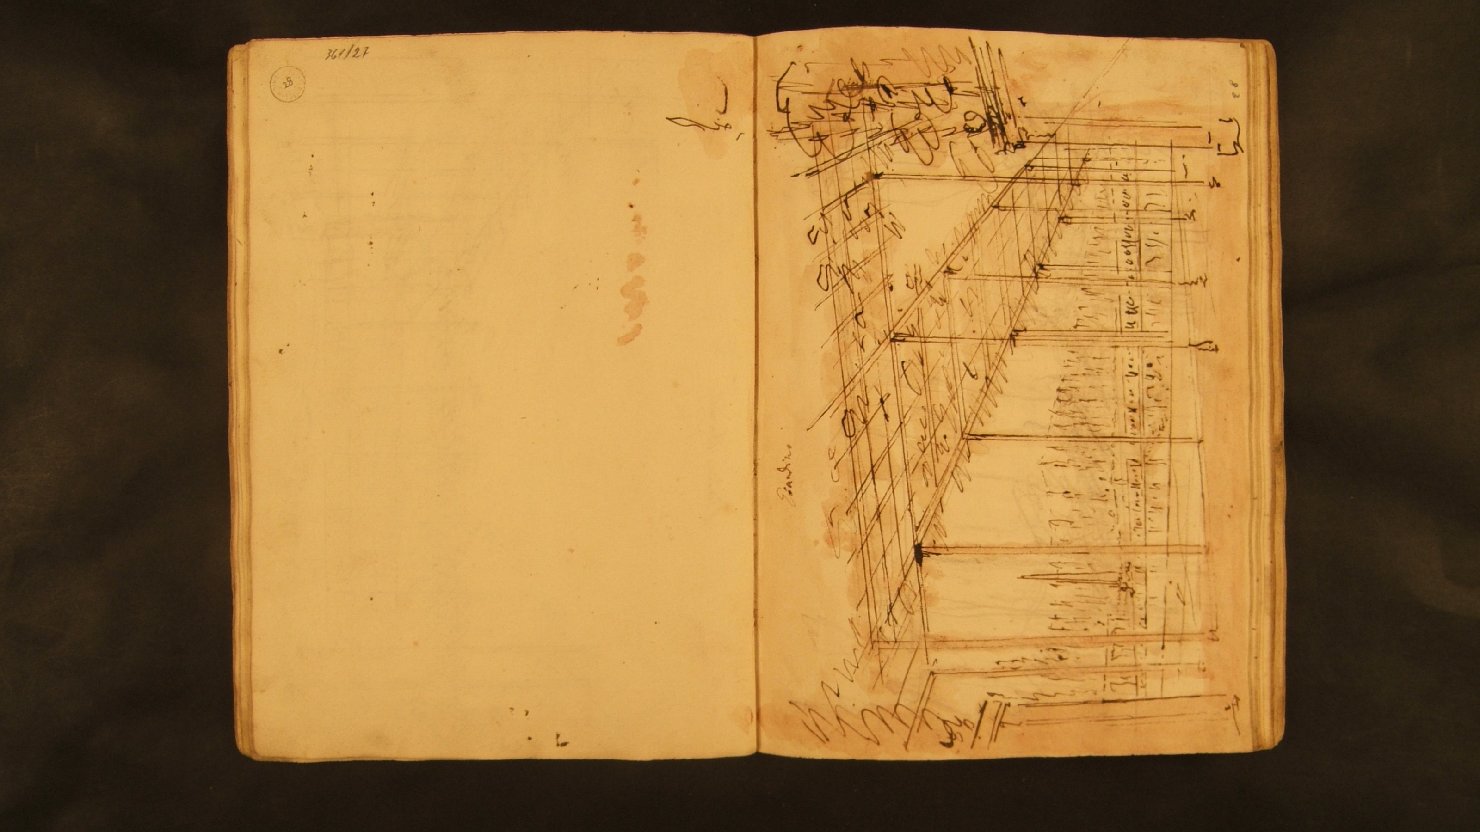 361/27
28
28
Giardino